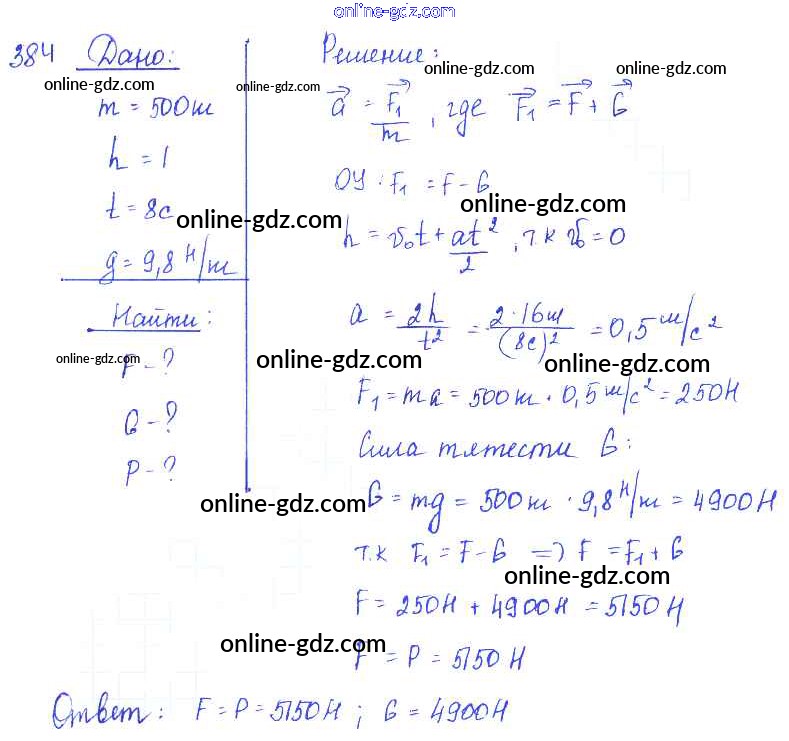 online-gdz.com
384 Дано:
online-gdz.com
m = 500 кг
h = 1
t = 8с
online-gdz.com
g = 9,8 Н/кг
Найти:
online-gdz.com
F - ?
G - ?
P - ?
Решение:
online-gdz.com online-gdz.com online-gdz.com
a = F₁/m , где F₁ = F + G
ОУ: F₁ = F - G
online-gdz.com
h = v₀t + at²/2 , т.к v₀ = 0
a = 2h/t² = 2·16м/(8с)² = 0,5 м/с²
online-gdz.com online-gdz.com
F₁ = ma = 500кг · 0,5 м/с² = 250Н
Сила тяжести G:
online-gdz.com
G = mg = 500кг · 9,8 Н/кг = 4900Н
т.к F₁ = F - G => F = F₁ + G
online-gdz.com
F = 250Н + 4900Н = 5150Н
online-gdz.com
F = P = 5150 Н
Ответ: F = P = 5150Н ; G = 4900Н